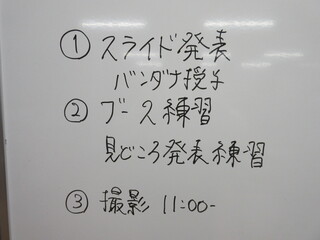 ① スライド発表
バンダナ授与
② ブース練習
見どころ発表練習
③ 撮影 11:00-